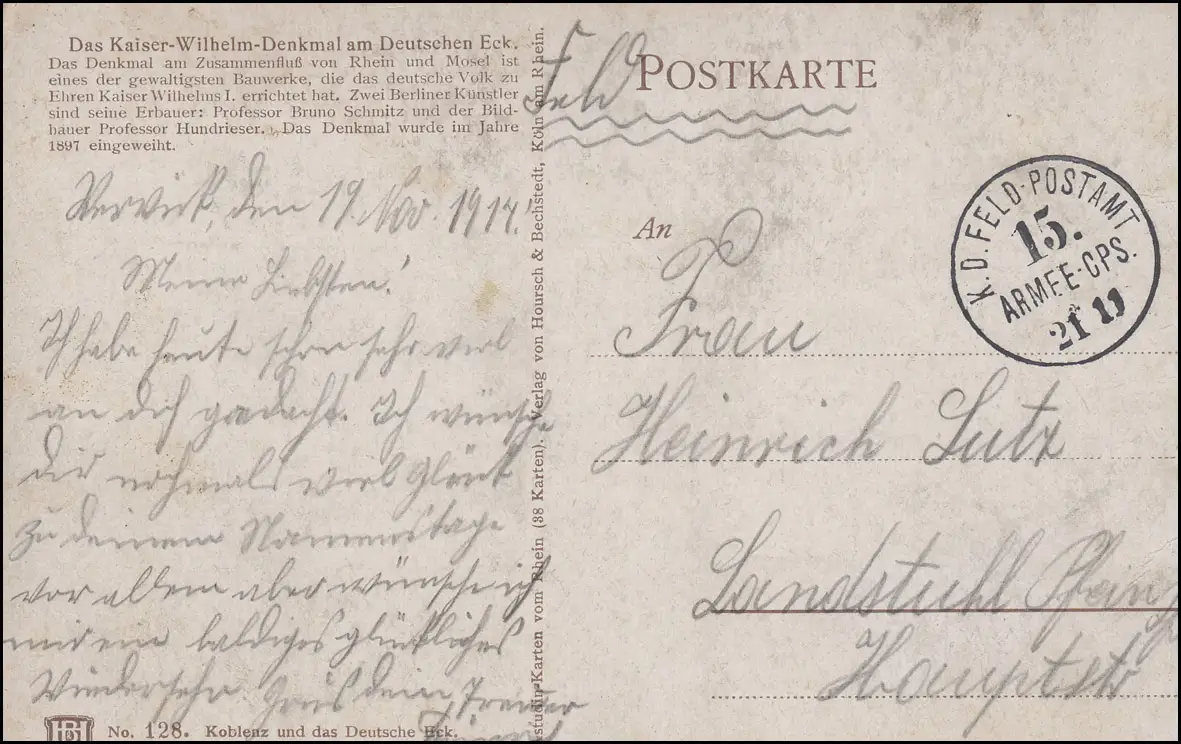 Das Kaiser-Wilhelm-Denkmal am Deutschen Eck.
Das Denkmal am Zusammenfluß von Rhein und Mosel ist
eines der gewaltigsten Bauwerke, die das deutsche Volk zu
Ehren Kaiser Wilhelms I. errichtet hat. Zwei Berliner Künstler
sind seine Erbauer: Professor Bruno Schmitz und der Bild-
hauer Professor Hundrieser. Das Denkmal wurde im Jahre
1897 eingeweiht.
Wervick, den 19. Nov. 1914.
Meine Liebsten!
Ich habe heute schon sehr viel
an dich gedacht. Ich wünsche
dir nochmals viel Glück
zu deinem Namenstage
vor allem aber wünsche ich
mir ein baldiges glückliches
Wiedersehn Grus dein Treuer
HB
No. 128. Koblenz und das Deutsche Eck.
Karten vom Rhein (38 Karten). Verlag von Hoursch & Bechstedt, Köln am Rhein.
Feld POSTKARTE
K.D. FELD-POSTAMT
15.
ARMEE-CPS.
21 11
An
Frau
Heinrich Lutz
Landstuhl Pfalz
Hauptstr